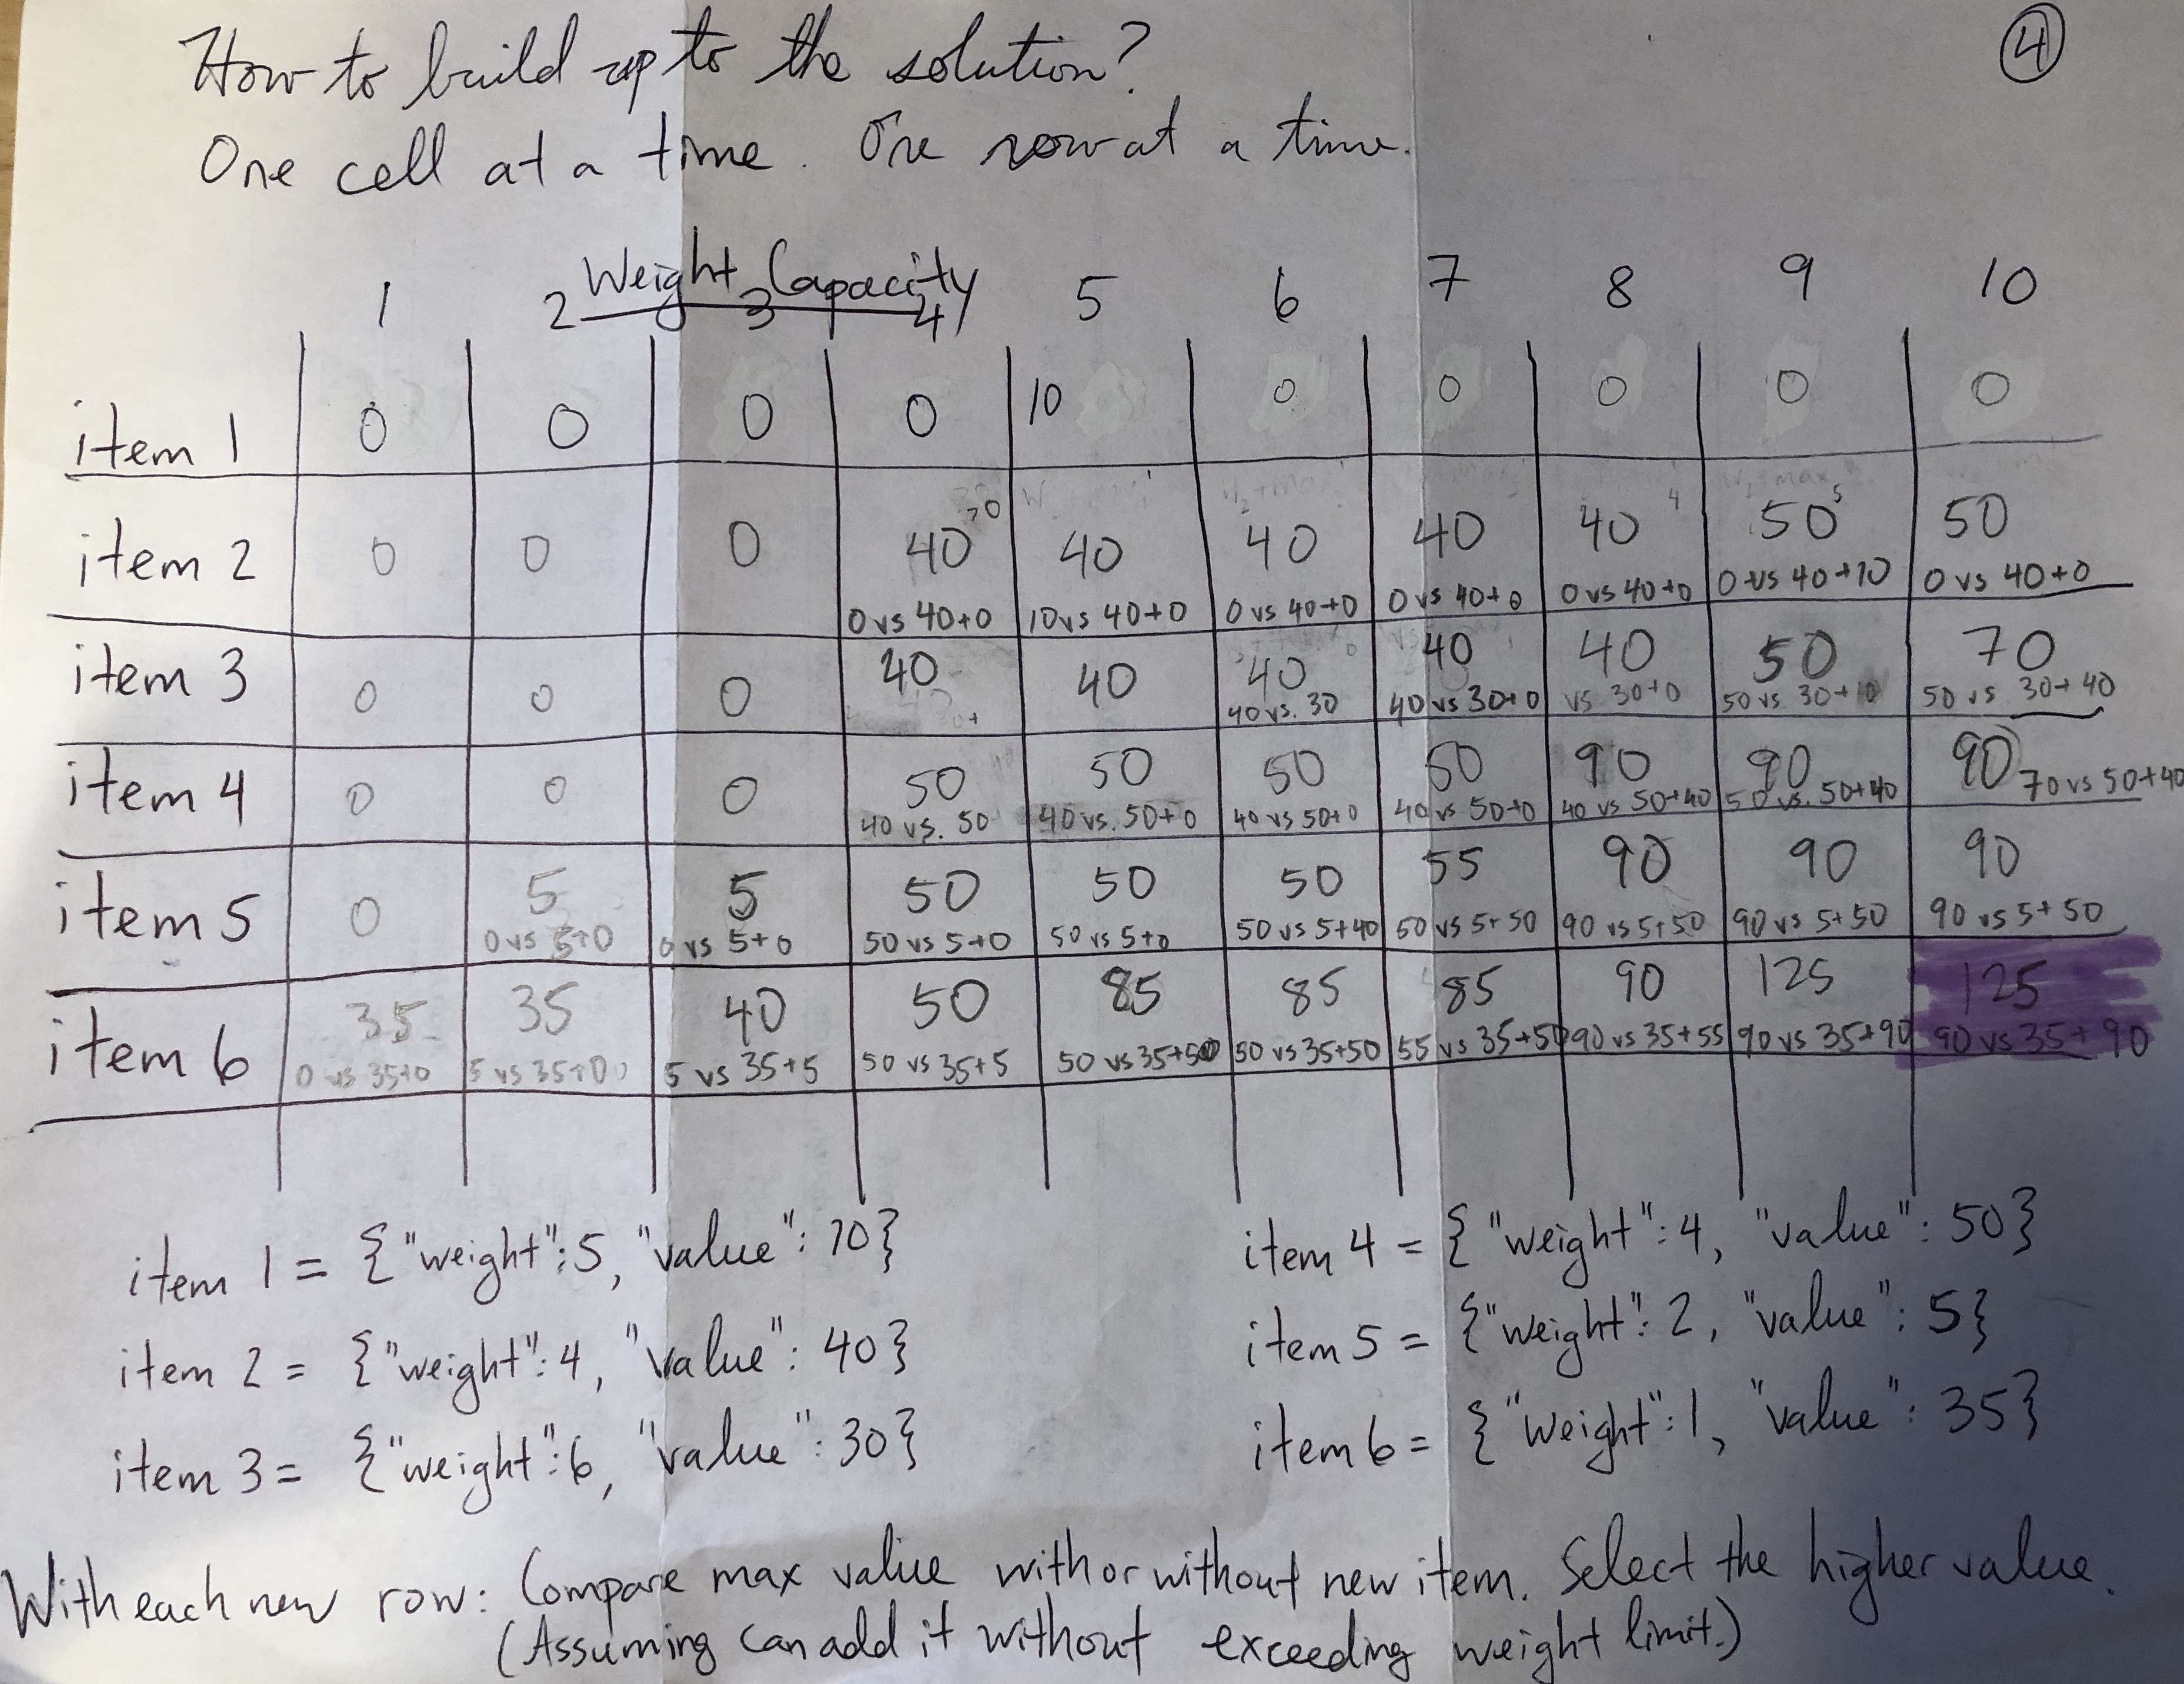 How to build up to the solution?
④
One cell at a time. One row at a time.
Weight Capacity
1 2 3 4 5 6 7 8 9 10
item 1 0 0 0 0 10 0 0 0 0 0
item 2 0 0 0 40 40 40 40 40 50 50
0 vs 40+0 10 vs 40+0 0 vs 40+0 0 vs 40+0 0 vs 40+0 0 vs 40+10 0 vs 40+0
item 3 0 0 0 40 40 40 40 40 50 70
40 vs. 30 40 vs 30+0 vs 30+0 50 vs 30+10 50 vs 30+40
item 4 0 0 0 50 50 50 50 90 90 90
40 vs. 50 40 vs. 50+0 40 vs 50+0 40 vs 50+0 40 vs 50+40 50 vs. 50+40 70 vs 50+40
item 5 0 5 5 50 50 50 55 90 90 90
0 vs 5+0 0 vs 5+0 50 vs 5+0 50 vs 5+0 50 vs 5+40 50 vs 5+50 90 vs 5+50 90 vs 5+50 90 vs 5+50
item 6 35 35 40 50 85 85 85 90 125 125
0 vs 35+0 5 vs 35+0 5 vs 35+5 50 vs 35+5 50 vs 35+50 50 vs 35+50 55 vs 35+50 90 vs 35+55 90 vs 35+90 90 vs 35+90
item 1 = {"weight":5, "value": 10}
item 2 = {"weight":4, "value": 40}
item 3 = {"weight":6, "value": 30}
item 4 = {"weight":4, "value": 50}
item 5 = {"weight":2, "value": 5}
item 6 = {"weight":1, "value": 35}
With each new row: Compare max value with or without new item. Select the higher value.
(Assuming can add it without exceeding weight limit.)